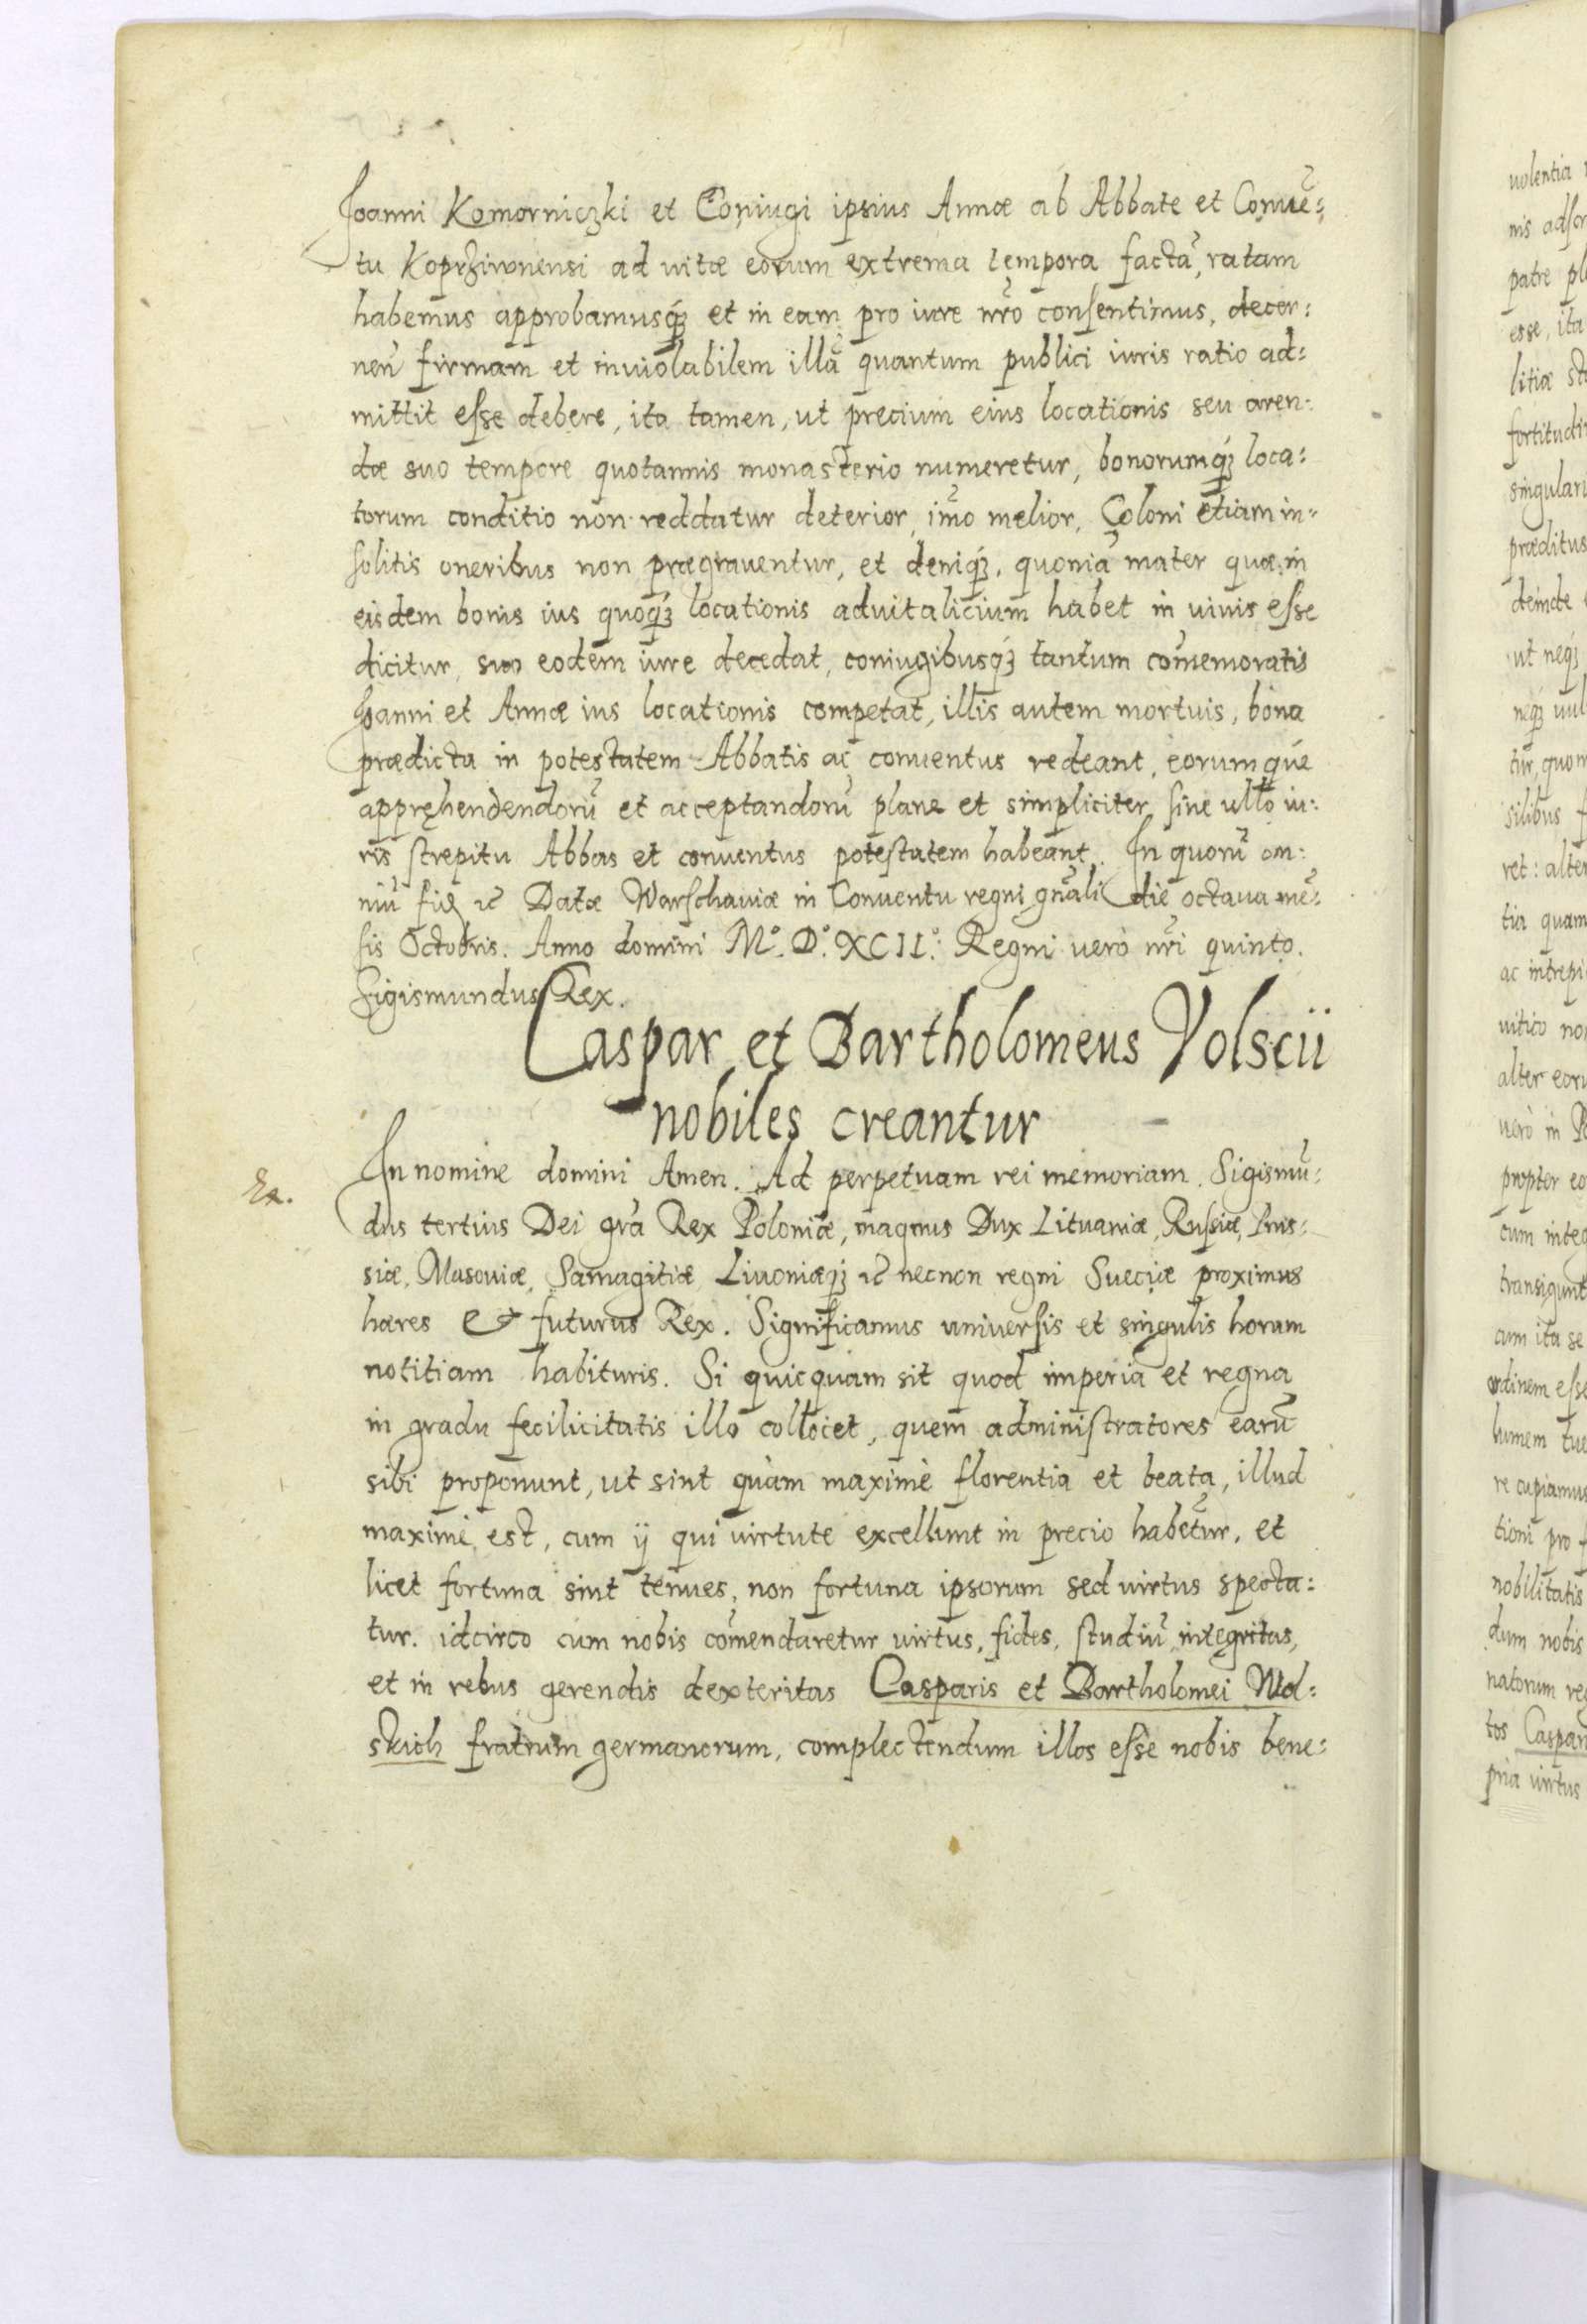 Joanni Komorniczki et Coniugi ipsius Annæ ab Abbate et Conuē:
tu Koprziwnensi ad vitæ eorum extrema tempora factā, ratam
habemus approbamusq́ꝫ et in eam pro iure nr̃o conſentimus, decer:
nen̄ firmam et inuiolabilem illā quantum publici iuris ratio ad:
mittit eſse debere, ita tamen, ut precium eius locationis seu aren:
dæ suo tempore quotannis monasterio numeretur, bonorumq́ꝫ loca:
torum conditio non reddatur deterior, im̄o melior, Coloni etiam in:
ſolitis oneribus non prægrauentur, et deniq́ꝫ, quoniā mater quæ in
eisdem bonis ius quoq́ꝫ locationis aduitalicium habet in uiuis eſse
dicitur, suo eodem iure decedat, coniugibusq́ꝫ tantum com̄emoratis
Joanni et Annæ ius locationis competat, illis autem mortuis, bona
prædicta in potestatem Abbatis ac conuentus redeant, eorumque
apprehendendorū et acceptandorū plane et simpliciter, ſine ullo iu:
ris ſtrepitu Abbas et conuentus poteſtatem habeant. In quorū om:
niū fidẽ ꝛc̄ Datæ Warſchauiæ in Conuentu regni gnāli die octaua mē:
ſis Octobris. Anno domini M.º D.º XCII.º Regni verò nr̃i quinto.
Sigismundus Rex.
Caspar et Bartholomeus Volscii
nobiles creantur
Ex.
In nomine domini Amen. Ad perpetuam rei memoriam. Sigismū:
dus tertius Dei gr̄a Rex Poloniæ, magnus Dux Lituaniæ, Ruſsiæ, Prus:
siæ, Masouiæ, Samagitiæ, Liuoniæq́ꝫ ꝛc̄ necnon regni Sueciæ proximus
hæres et futurus Rex. Significamus uniuerſis et singulis horum
notitiam habituris. Si quicquam sit quod imperia et regna
in gradu fecilicitatis illo collocet, quem adminiſtratores earū
sibi proponunt, ut sint quàm maximè florentia et beata, illud
maximè est, cum ij qui virtute excellunt in precio habētur, et
licet fortuna sint tenues, non fortuna ipsorum sed virtus specta:
tur. idcirco cum nobis com̄endaretur virtus, fides, ſtudiū, integritas,
et in rebus gerendis dexteritas Casparis et Bartholomei Wol:
skich fratrum germanorum, complectendum illos eſse nobis bene:
uolentia
patre
esse, ita
litiæ
singularu
præditus
deinde
ut neq́ꝫ
silibus
ret: alter
tia quam
ac intrepi
uitico
alter eoru
verò in
propter eo
cum
transigunt
cum ita se
ordinem eſse
lumem
re cupiamus
tioni pro
nobilitatis
dum nobis
natorum
tos Caspar
pria virtus